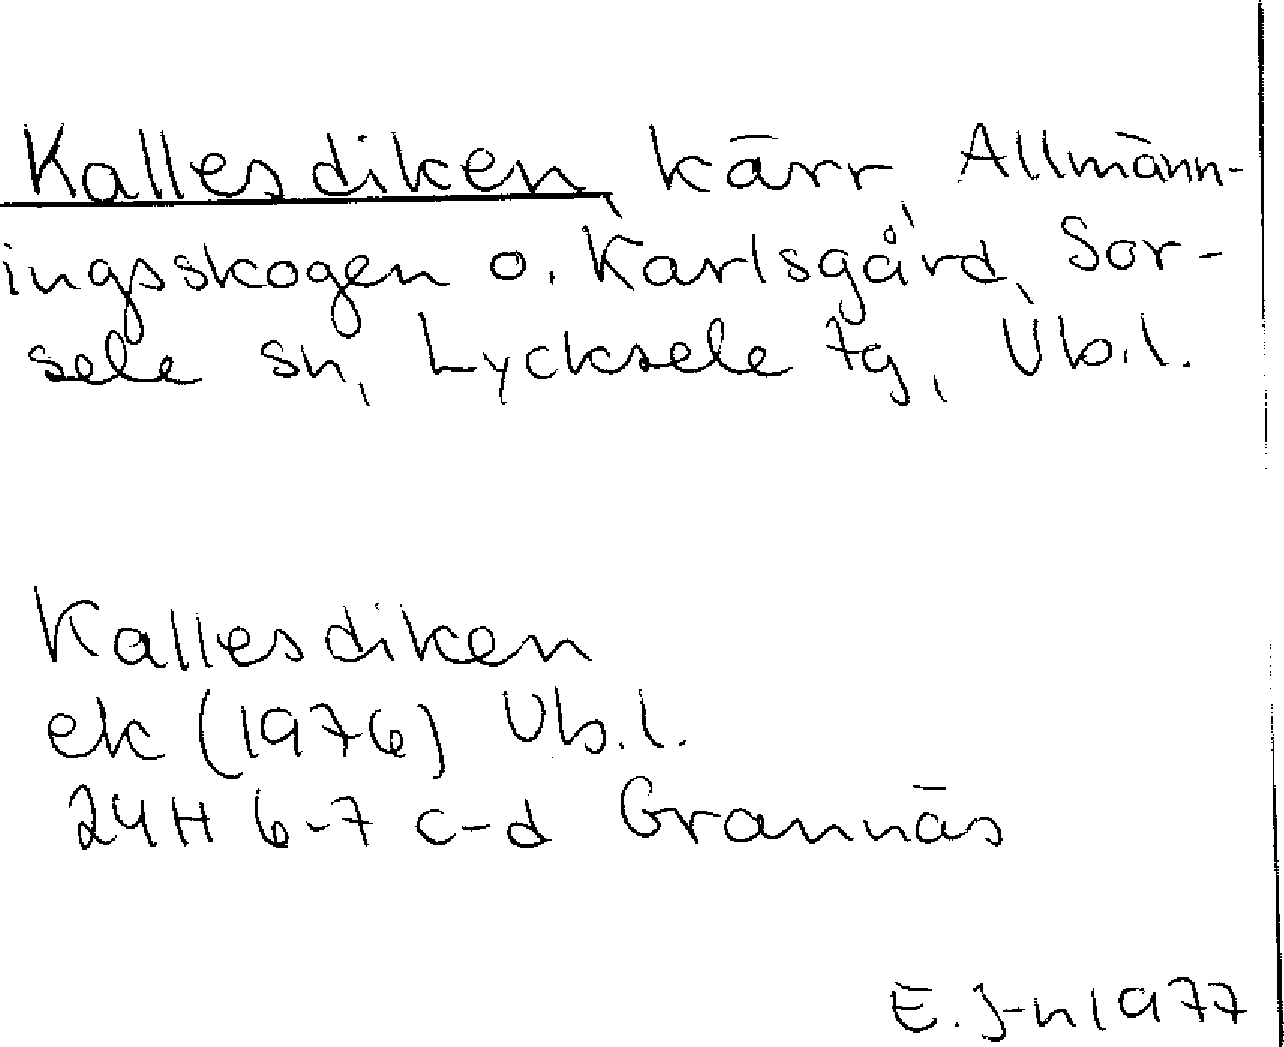 Kallesdiken, kärr, Allmänn-
ingsskogen o. Karlsgård, Sor-
sele sn, Lycksele tg, Vb.l.
Kallesdiken
ek (1976) Vb.l.
24H 6-7 c-d Grannäs
E. J-n 1977